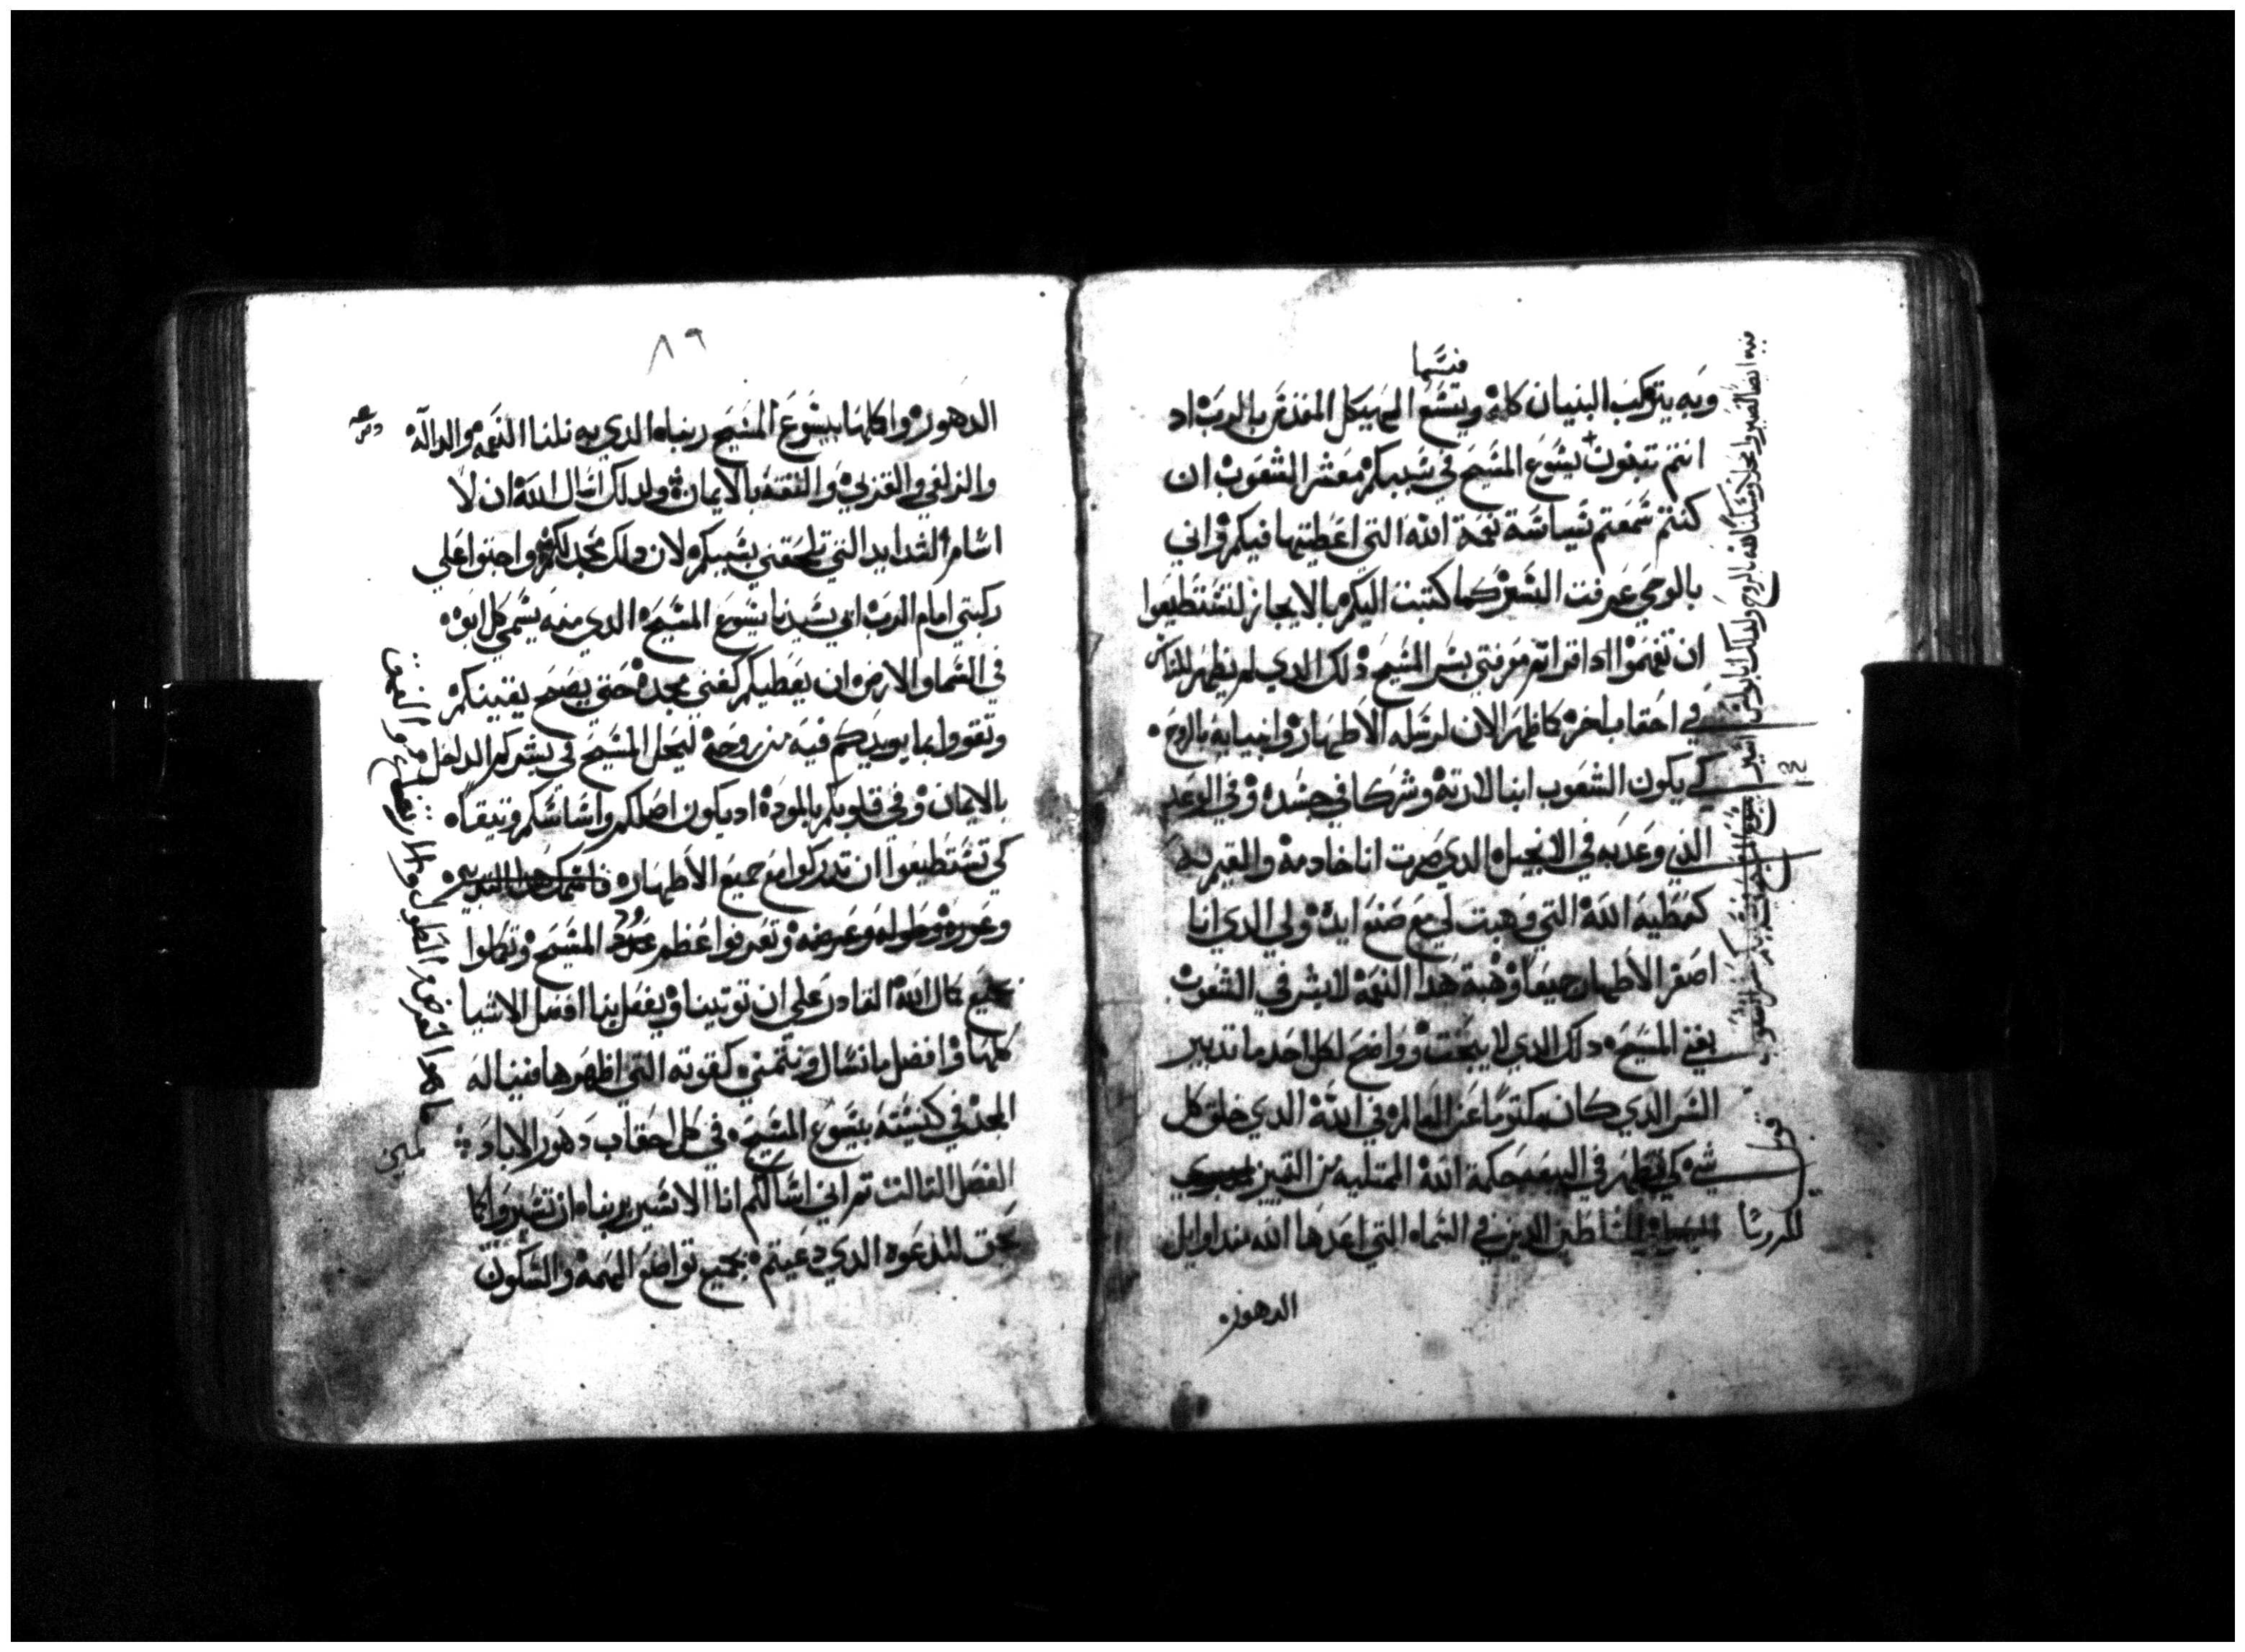 فيتسما
وبه يتركب البنيان كله ويتسع الهيكل المقدس بالرب اد
انتم تبنون بيسوع المسيح في سببكم معشر الشعوب ان
كنتم سمعتم سياسة نعمة الله التي اعطيتها فيكم واني
بالوحي عرفت السر كما كتبت اليكم بالايجاز لتستطيعوا
ان تفهموا ادا قراتم معرفتي بسر المسيح دلك الدي لم يظهر للناس
في احقاب اخر كما ظهر الان لرسله الاطهار وانبيايه بالروح
كي يكون الشعوب ابنا لارته وشركا في جسده وفي الوعد
الدي وعد به في الانجيل الدي صرت انا خادمه والقيم به
كعطية الله التي وهبت لي مع صنع ايده ولي الدي انا
اصغر الاطهار جميعا وهبة هدا النعمة لابشر في الشعوب
بغنى المسيح دلك الدي لا يبحت وواضح لكل احد ما تدبير
السر الدي كان مكتوما عن العالم في الله الدي خلق كل
شي كي تظهر في البيعه حكمة الله الممتليه من التمييز
للروسا
للسلاطين الدين في السماء التي اعدها الله مند اوايل
الدهور
٨٩
الدهور واكلها بيسوع المسيح ربنا الدي به نلنا النعمه والداله
والزلفي والقربي والثقه بالايمان ولدلك اسال الله ان لا
اسام الشدايد التي تلحقني بسببكم لان دلك مجد لكم واجتو اعلي
ركبتي امام الرب ابي سيدنا يسوع المسيح الدي منه يسمي كل ابوه
في السما والارض ان يعطيكم كغني مجده حتي يصح يقينكم
وتقووا بما يويدكم فيه من روحه ليحل المسيح في بشركم الداخل
بالايمان وفي قلوبكم بالموده اد يكون اصلكم واساسكم وتيقا
كي تستطيعوا ان تدركوا مع جميع الاطهار
وغوره وطوله وعرضه وتعرفوا عظم ود المسيح وتكملوا
ما هو العرض والطول والارتفاع والعمق
جميع كمال الله القادر علي ان توتينا ويفعل بنا افضل الاشيا
كلها وافضل ما نسال ونتمني كقوته التي اظهرها فينا له
المجد في كنيسته بيسوع المسيح في كل احقاب دهور الاباد
امين
الفصل التالت تم اني اسالكم انا الاسير بربنا ان تسيروا كما
يحق للدعوه الدي دعيتم بجميع تواضع الهمة والسكون